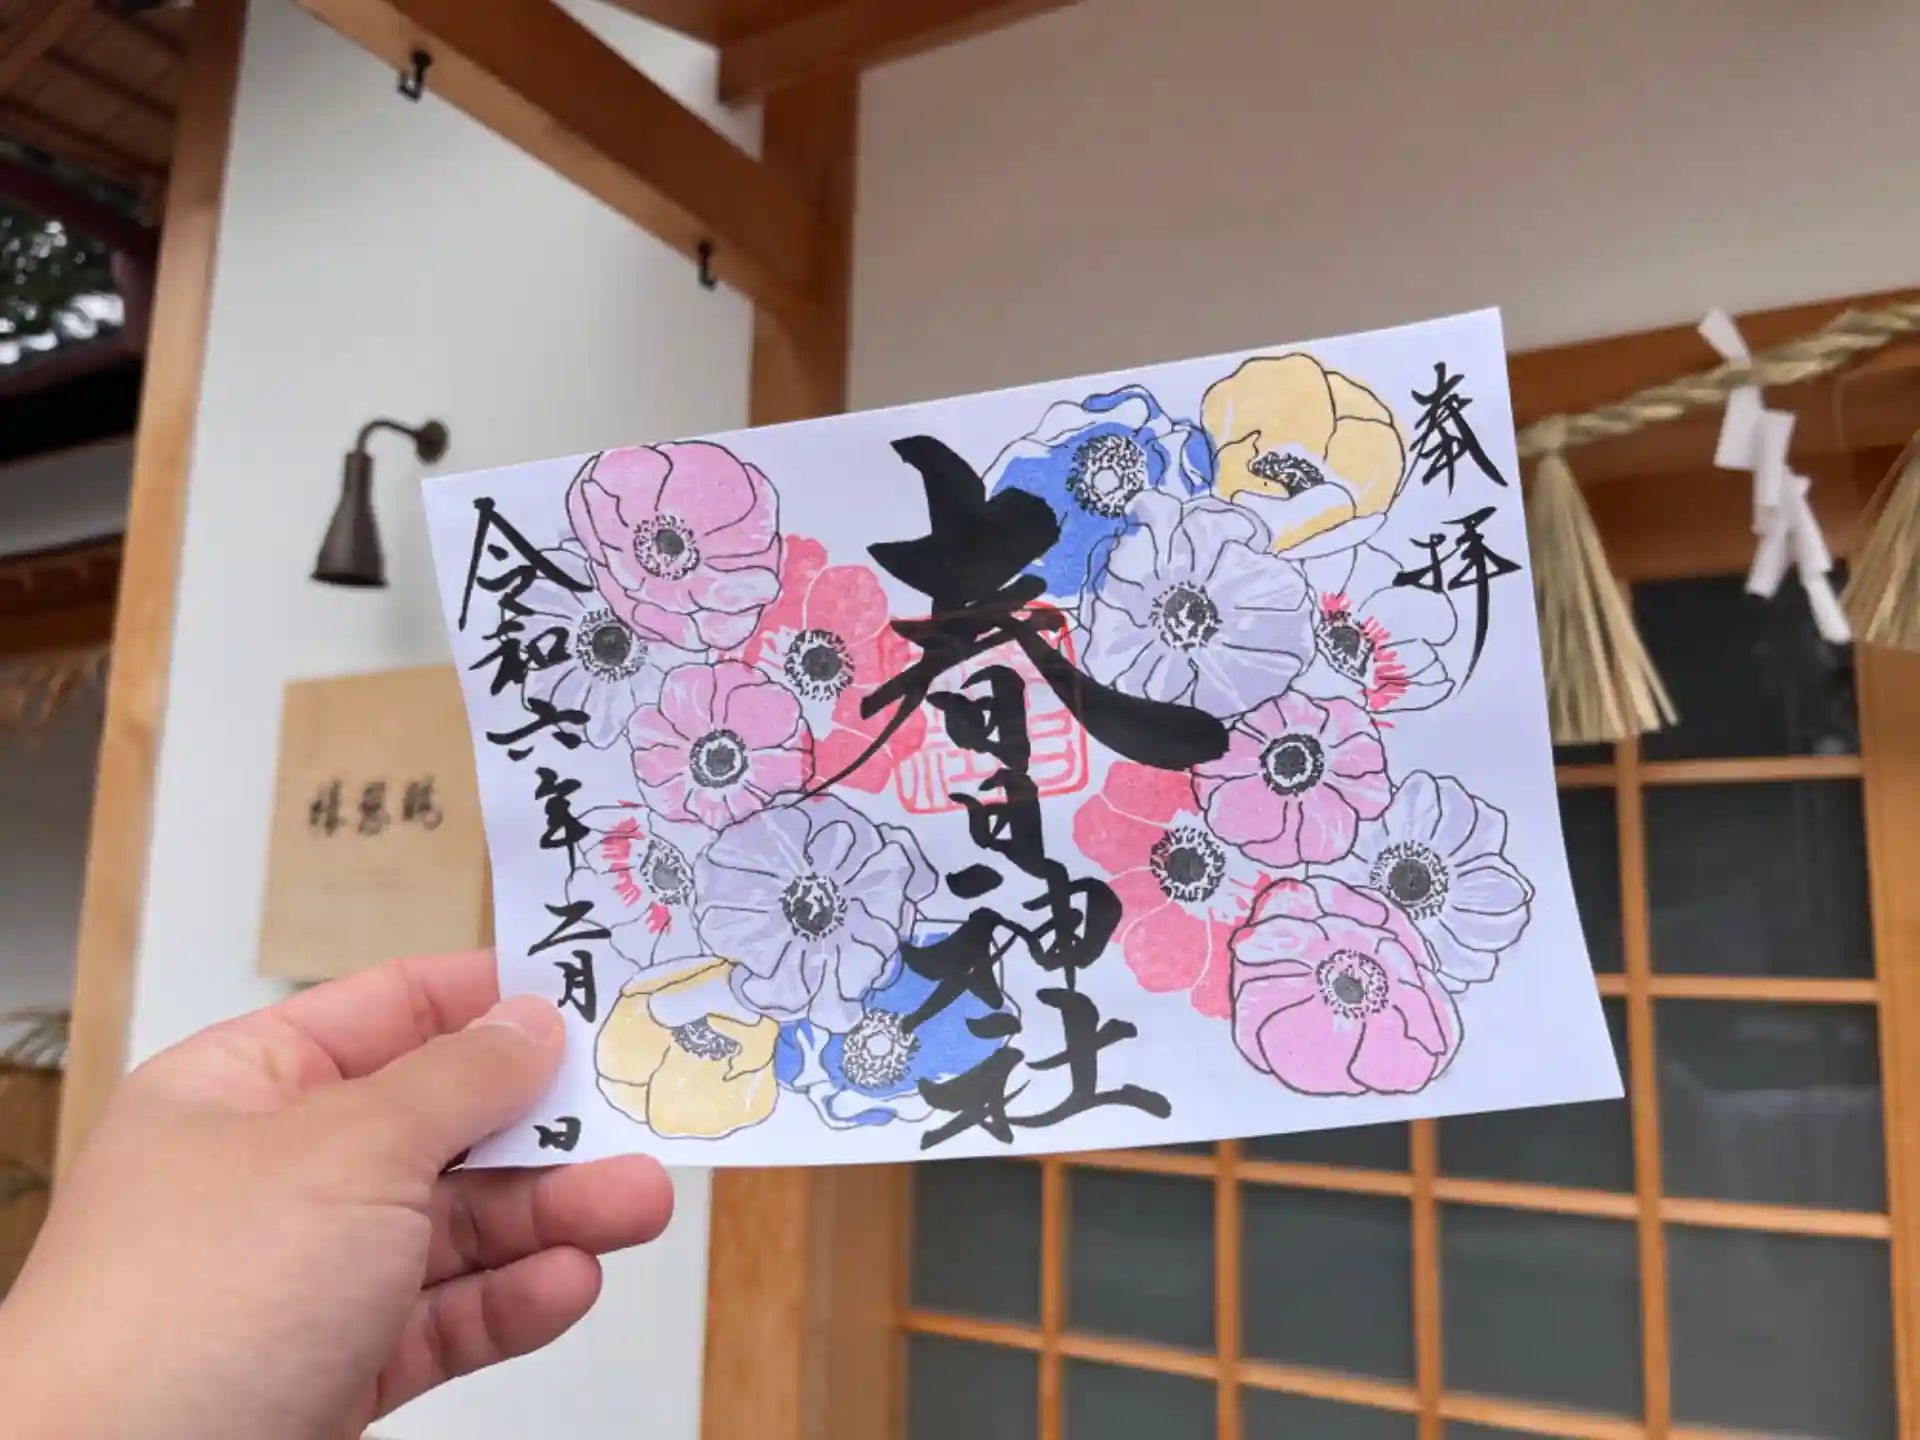 奉拝
春日神社
令和六年二月 日